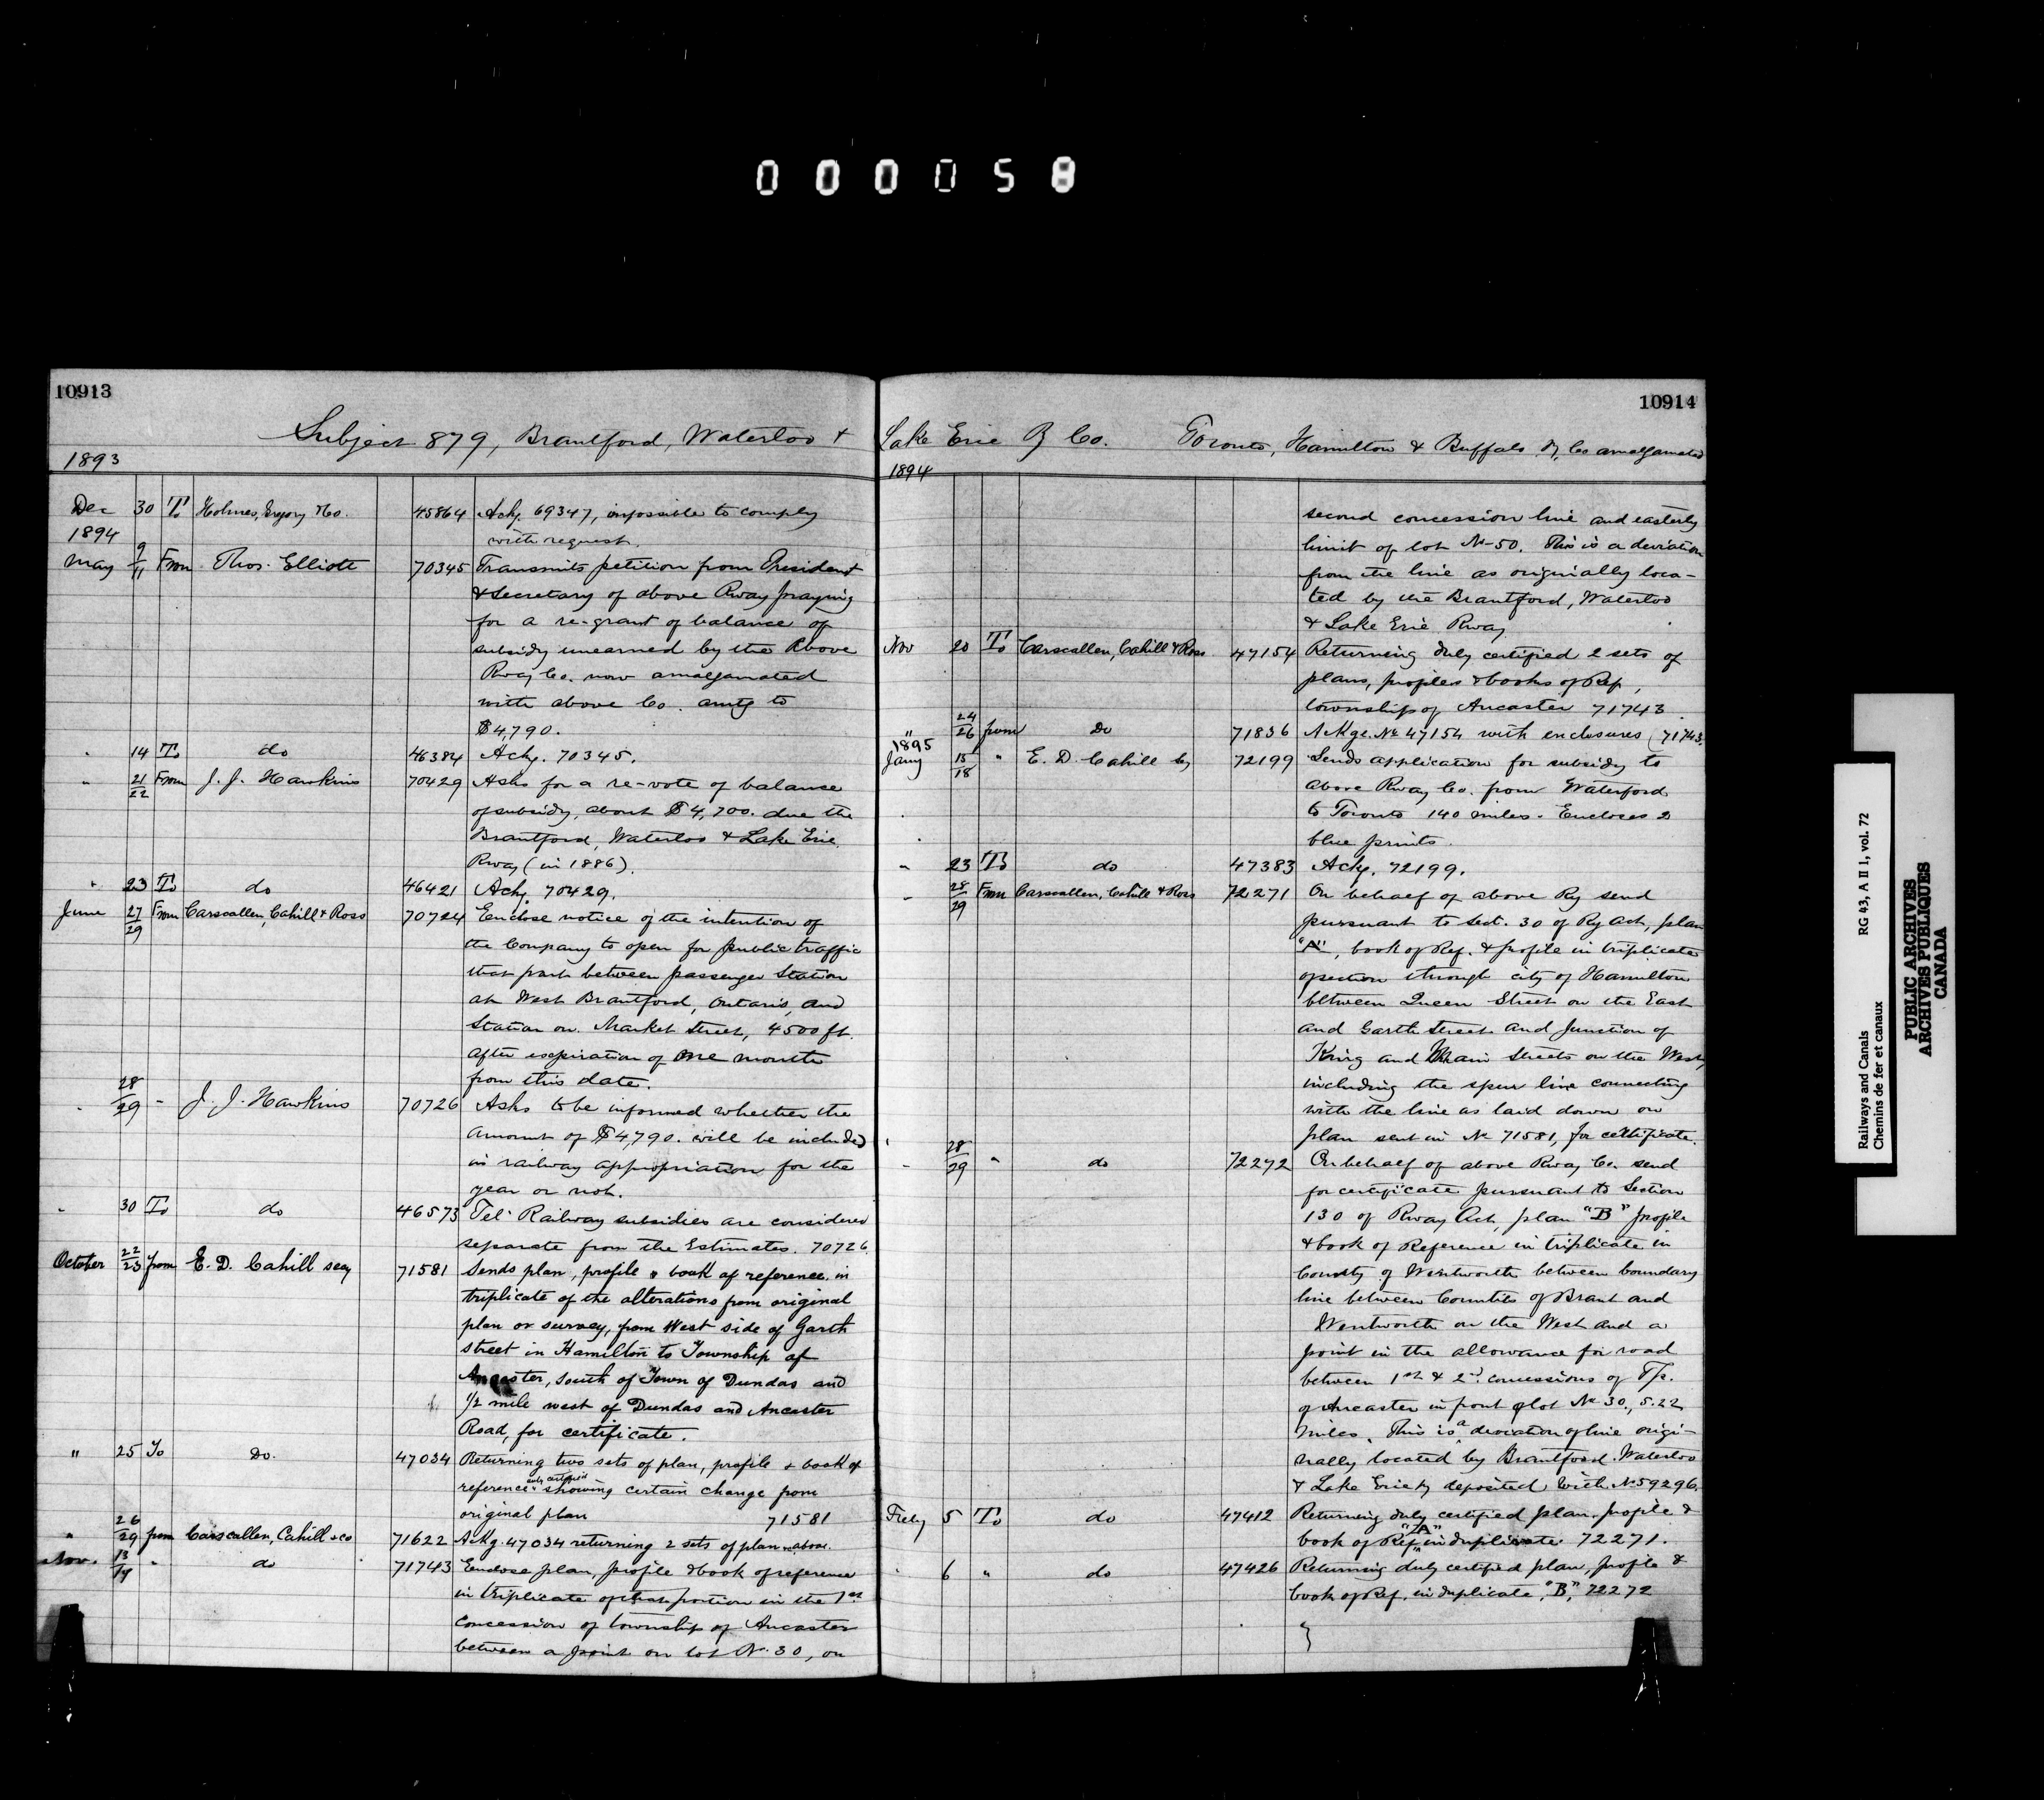 000058
10913
Subject 879, Brantford, Waterloo &
1893
Dec 30 To Holmes, Gregory & Co. 45864 Ackg. 69347, impossible to comply
with request.
1894
May 9/11 From Thos. Elliott 70345 Transmits petition from President
& Secretary of above Rway praying
for a re-grant of balance of
subsidy unearned by the above
Rway Co. now amalgamated
with above Co. amtg to
$4,790.
" 14 To do 46384 Ackg. 70345.
" 21/22 From J. J. Hawkins 70429 Asks for a re-vote of balance
of subsidy, about $4,700. due the
Brantford, Waterloo & Lake Erie
Rway (in 1886).
" 23 To do 46421 Ackg. 70429.
June 27/29 From Carscallen, Cahill & Ross 70724 Enclose notice of the intention of
the Company to open for public traffic
that part between passenger Station
at West Brantford, Ontario, and
Station on Market Street, 4500 ft.
after expiration of one month
from this date.
" 28/29 " J. J. Hawkins 70726 Asks to be informed whether the
amount of $4,790. will be included
in railway appropriation for the
year or not.
" 30 To do 46573 Tel. Railway subsidies are considered
separate from the Estimates. 70726.
October 22/23 from E. D. Cahill secy 71581 Sends plan, profile & book of reference in
triplicate of the alterations from original
plan or survey, from West side of Garth
street in Hamilton to Township of
Ancaster, South of Town of Dundas and
1/2 mile west of Dundas and Ancaster
Road, for certificate.
" 25 To Do. 47034 Returning two sets of plan, profile & book of
reference duly certified showing certain change from
original plan 71581
" 26/29 from Carscallen, Cahill & co 71622 Ackg. 47034 returning 2 sets of plan as above.
Nov. 13/14 " do 71743 Enclose plan, profile & book of reference
in triplicate of that portion in the 1st
concession of township of Ancaster
between a point on lot No. 30, on
10914
Lake Erie Ry Co. Toronto, Hamilton & Buffalo Ry. Co amalgamated
1894
second concession line and easterly
limit of lot No 50. This is a deviation
from the line as originally loca-
ted by the Brantford, Waterloo
& Lake Erie Rway
Nov 20 To Carscallen, Cahill & Ross 47154 Returning duly certified 2 sets of
plans, profiles & books of Ref,
township of Ancaster 71743.
" 24/26 from Do 71836 Ackge. No 47154 with enclosures (71743.
1895
Jany 15/18 " E. D. Cahill Sy 72199 Sends application for subsidy to
above Rway Co. from Waterford
to Toronto 140 miles. Encloses 2
blue prints.
" 23 To do 47383 Ackg. 72199.
" 28/29 From Carscallen, Cahill & Ross 72271 On behalf of above Ry send
pursuant to Sect. 30 of Ry Act, plan
"A", book of Ref. & profile in triplicate
of section through city of Hamilton
between Queen Street on the East
and Garth Street and Junction of
King and Main Streets on the West,
including the spur line connecting
with the line as laid down on
plan sent in No 71581, for certificate.
" 28/29 " do 72272 On behalf of above Rway Co. send
for certificate pursuant to Section
130 of Rway Act, plan "B" profile
& book of Reference in triplicate in
County of Wentworth between boundary
line between Counties of Brant and
Wentworth on the West and a
point in the allowance for road
between 1st & 2nd concessions of T/p.
of Ancaster in front of lot No 30, 5.22
miles. This is a deviation of line origi-
nally located by Brantford Waterloo
& Lake Erie Ry deposited with No 59296.
Feby 5 To do 47412 Returning duly certified plan, profile &
book of Ref. "A" in duplicate. 72271.
" 6 " do 47426 Returning duly certified plan, profile &
book of Ref. in duplicate, "B", 72272
Railways and Canals RG 43, A II 1, vol. 72
Chemins de fer et canaux
PUBLIC ARCHIVES
ARCHIVES PUBLIQUES
CANADA